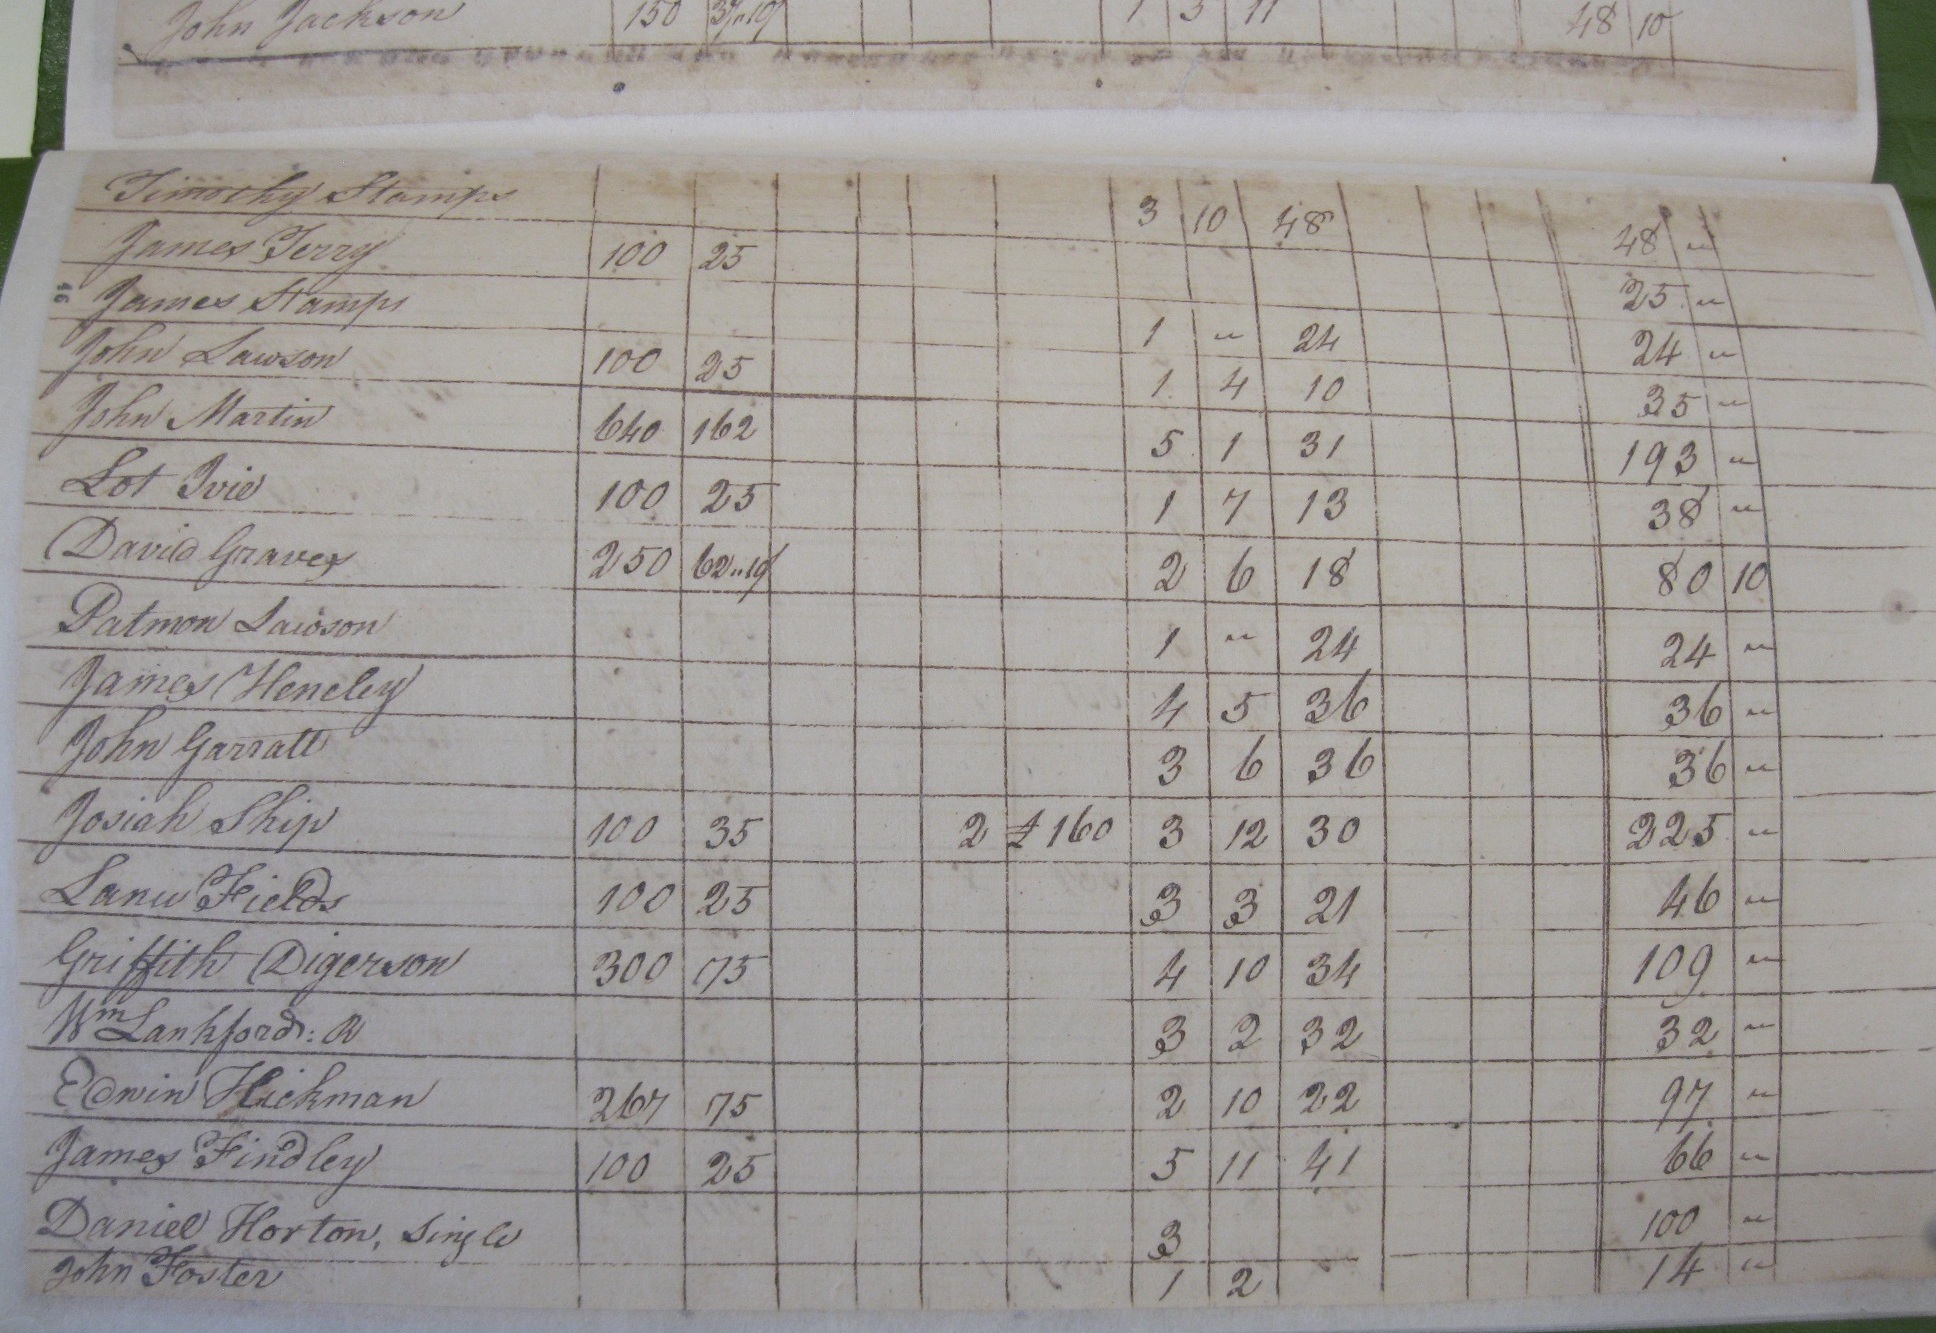 John Jackson 150 37,,10 1 3 11 48 10
Timothy Stamps 3 10 48 48 "
James Terry 100 25 25 "
46
James Stamps 1 " 24 24 "
John Lawson 100 25 1 4 10 35 "
John Martin 640 162 5 1 31 193 "
Lot Ivie 100 25 1 7 13 38 "
David Graves 250 62,,10 2 6 18 80 10
Patmon Lawson 1 " 24 24 "
James Hencley 4 5 36 36 "
John Garratt 3 6 36 36 "
Josiah Ship 100 35 2 £160 3 12 30 225 "
Fields 100 25 3 3 21 46 "
Griffith Digerson 300 75 4 10 34 109 "
Wm Lankford: R 3 2 32 32 "
Edwin Hickman 267 75 2 10 22 97 "
James Findley 100 25 5 11 41 66 "
Daniel Horton, Single 3 100 "
John Foster 1 2 14 "